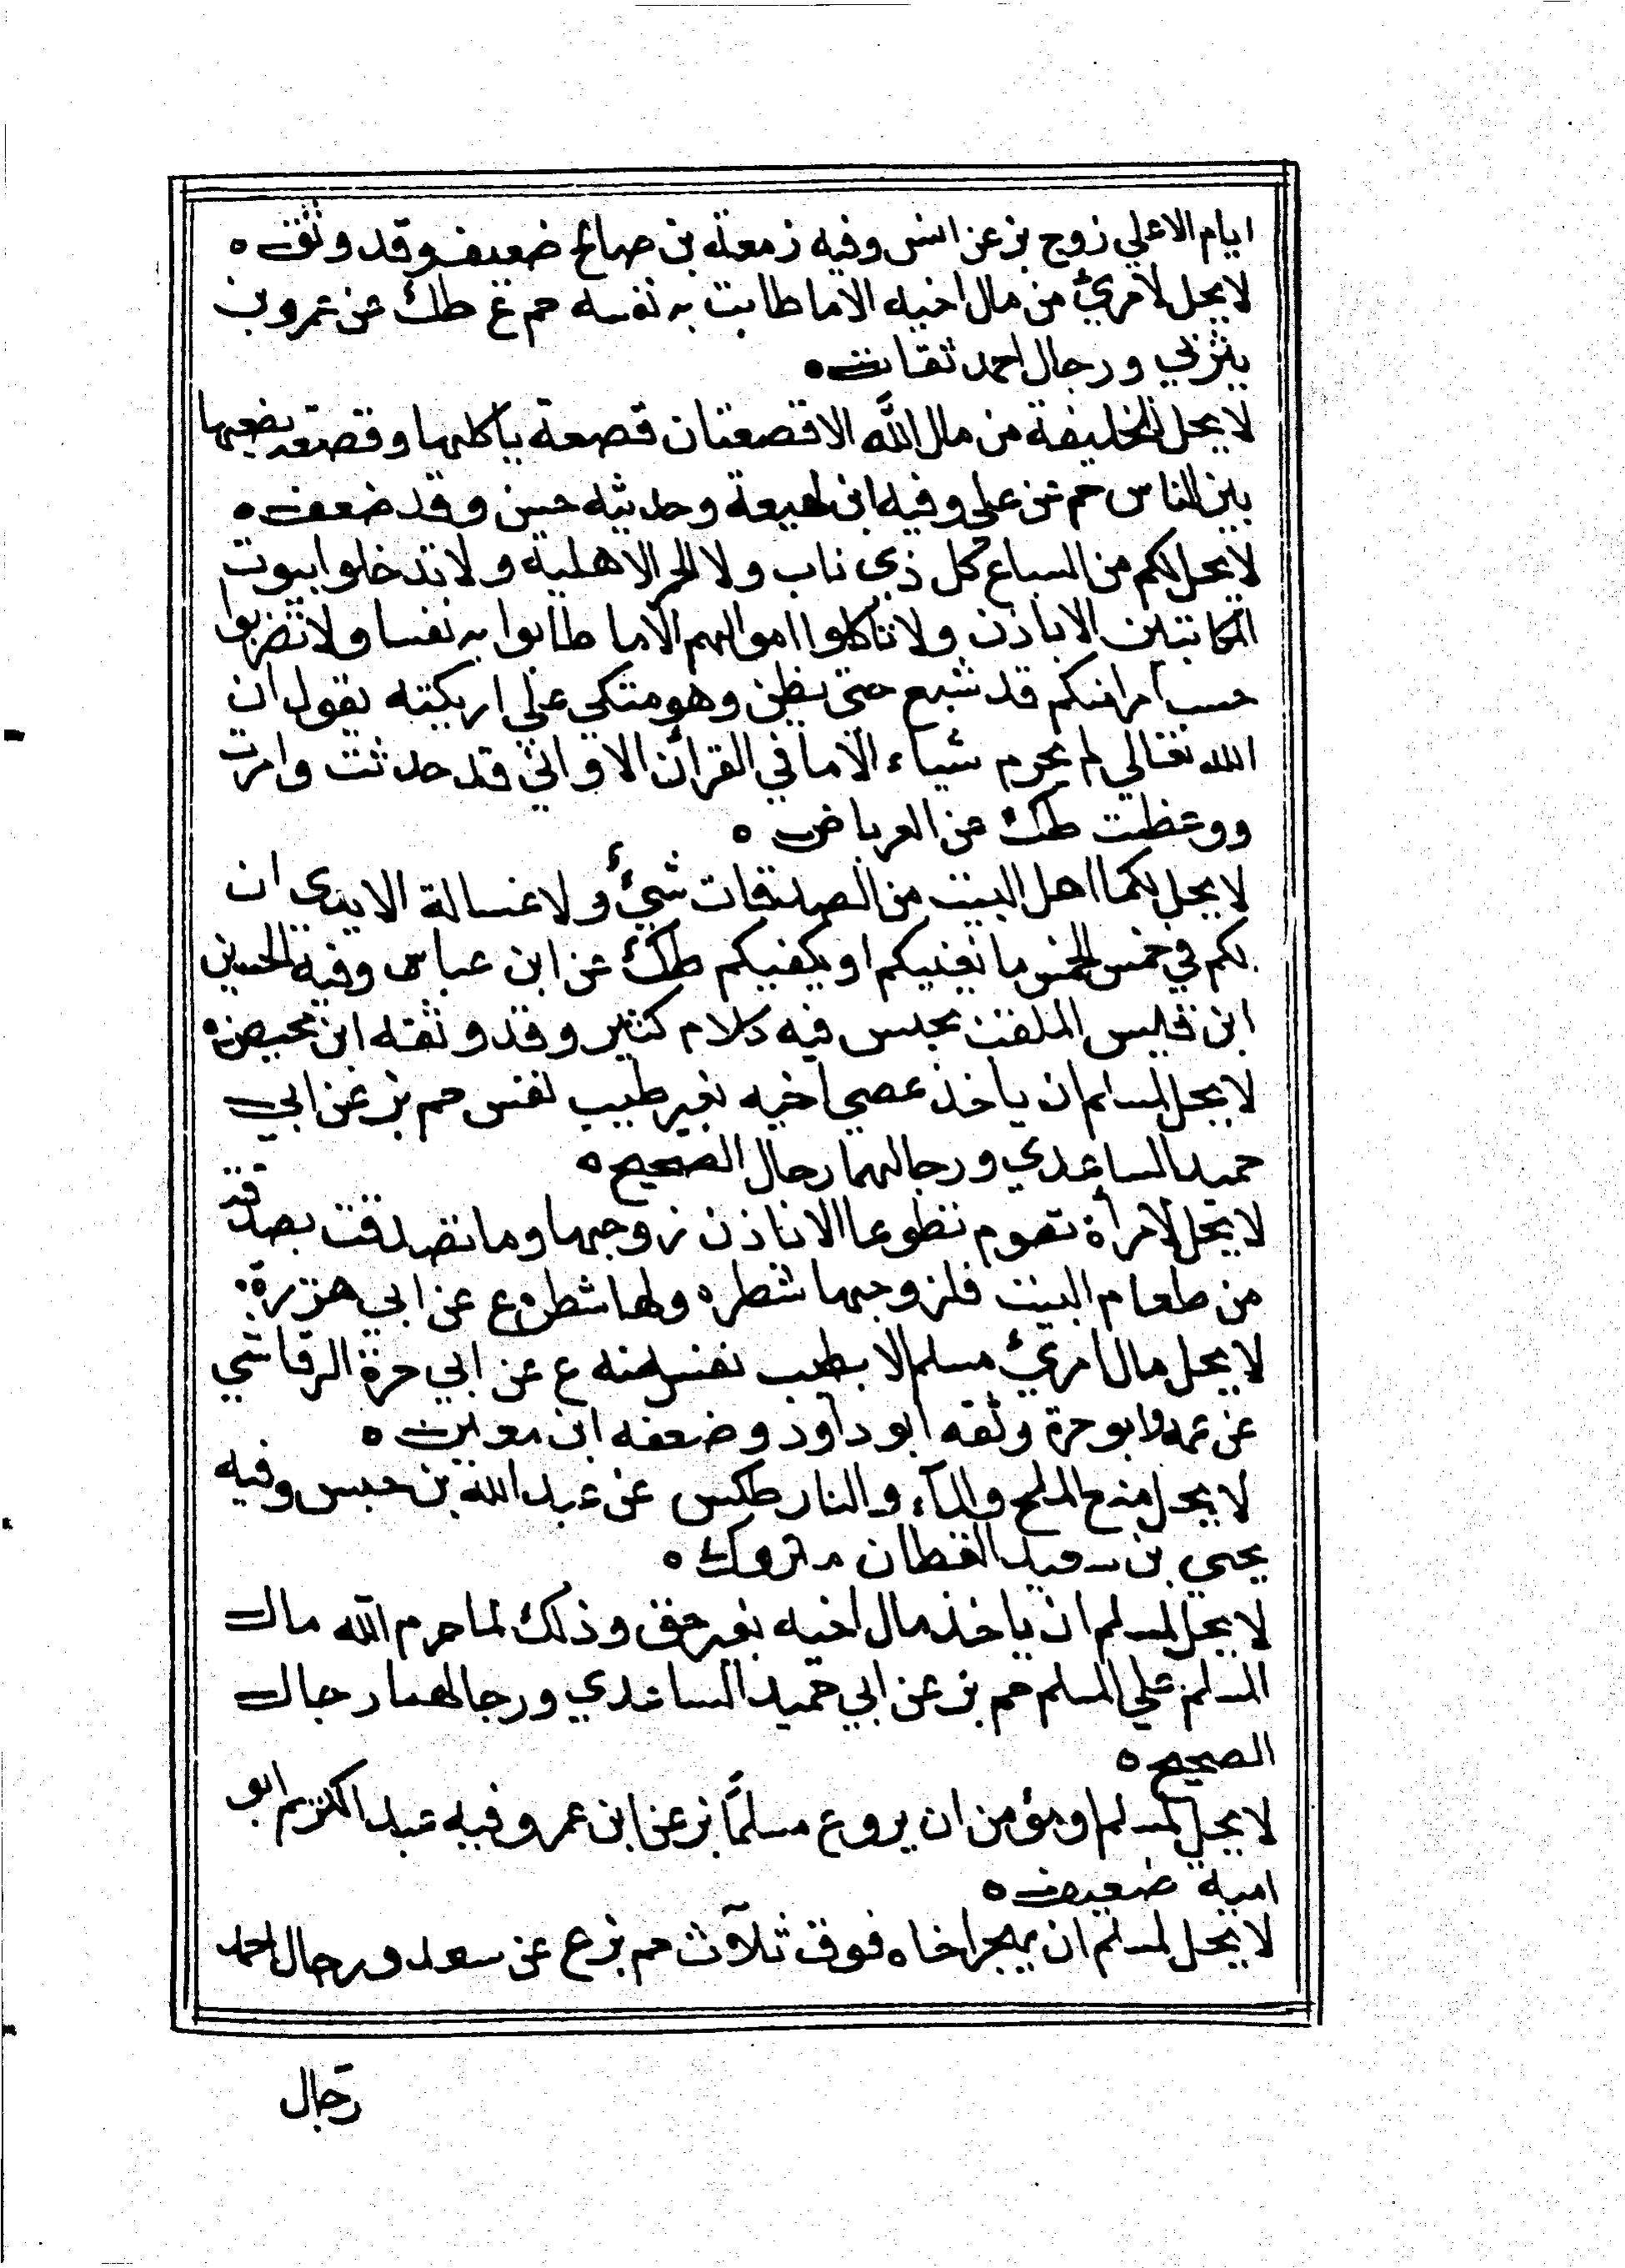 ايام الا علي زوج بز عن انس وفيه زمعة بن صالح ضعيف وقد وثق ه
لا يحل لامرئ من مال اخيه الا ما طابت به نفسه حم ع طك عن عمرو بن
يثربي ورجال احمد ثقات ه
لا يحل للخليفة من مال الله الا قصعتان قصعة ياكلها وقصعة يضعها
بين الناس حم عن علي وفيه ابن لهيعة وحديثه حسن وقد ضعف ه
لا يحل لكم من السباع كل ذي ناب ولا الحمر الاهلية ولا تدخلوا بيوت
المكاتبين الا باذن ولا تاكلوا اموالهم الا ما طابوا به نفسا ولا تضربوا
حسب امرا منكم قد شبع حتى بطن وهو متكي علي اريكته يقول ان
الله تعالي لم يحرم شياء الا ما في القرآن الا واني قد حدثت وامرت
ووعظت طك عن العرباض ه
لا يحل لكما اهل البيت من الصدقات شيئ ولا غسالة الايدي ان
لكم في خمس الخمس ما يغنيكم او يكفيكم طك عن ابن عباس وفيه الحسين
ابن قيس الملقب بحبس فيه كلام كثير وقد وثقه ابن محيصن ه
لا يحل لمسلم ان ياخذ عصي اخيه بغير طيب نفس حم بز عن ابي
حميد الساعدي ورجالهما رجال الصحيح ه
لا يحل لامرأة تصوم تطوعا الا باذن زوجها وما تصدقت بصدقة
من طعام البيت فلزوجها شطره ولها شطره ع عن ابي هريرة
لا يحل مال امرئ مسلم الا بطيب نفس منه ع عن ابي حرة الرقاشي
عن عمه وابو حرة وثقه ابو داود وضعفه ابن معين ه
لا يحل منع الملح والماء والنار طكس عن عبد الله بن حبس وفيه
يحيي بن سعيد القطان متروك ه
لا يحل لمسلم ان ياخذ مال اخيه بغير حق وذلك لما حرم الله مال
المسلم علي المسلم حم بز عن ابي حميد الساعدي ورجالهما رجال
الصحيح ه
لا يحل لمسلم او مؤمن ان يروع مسلمًا بز عن ابن عمر وفيه عبد الكريم ابو
امية ضعيف ه
لا يحل لمسلم ان يهجر اخاه فوق ثلاث حم بز ع عن سعد ورجال احمد
رجال